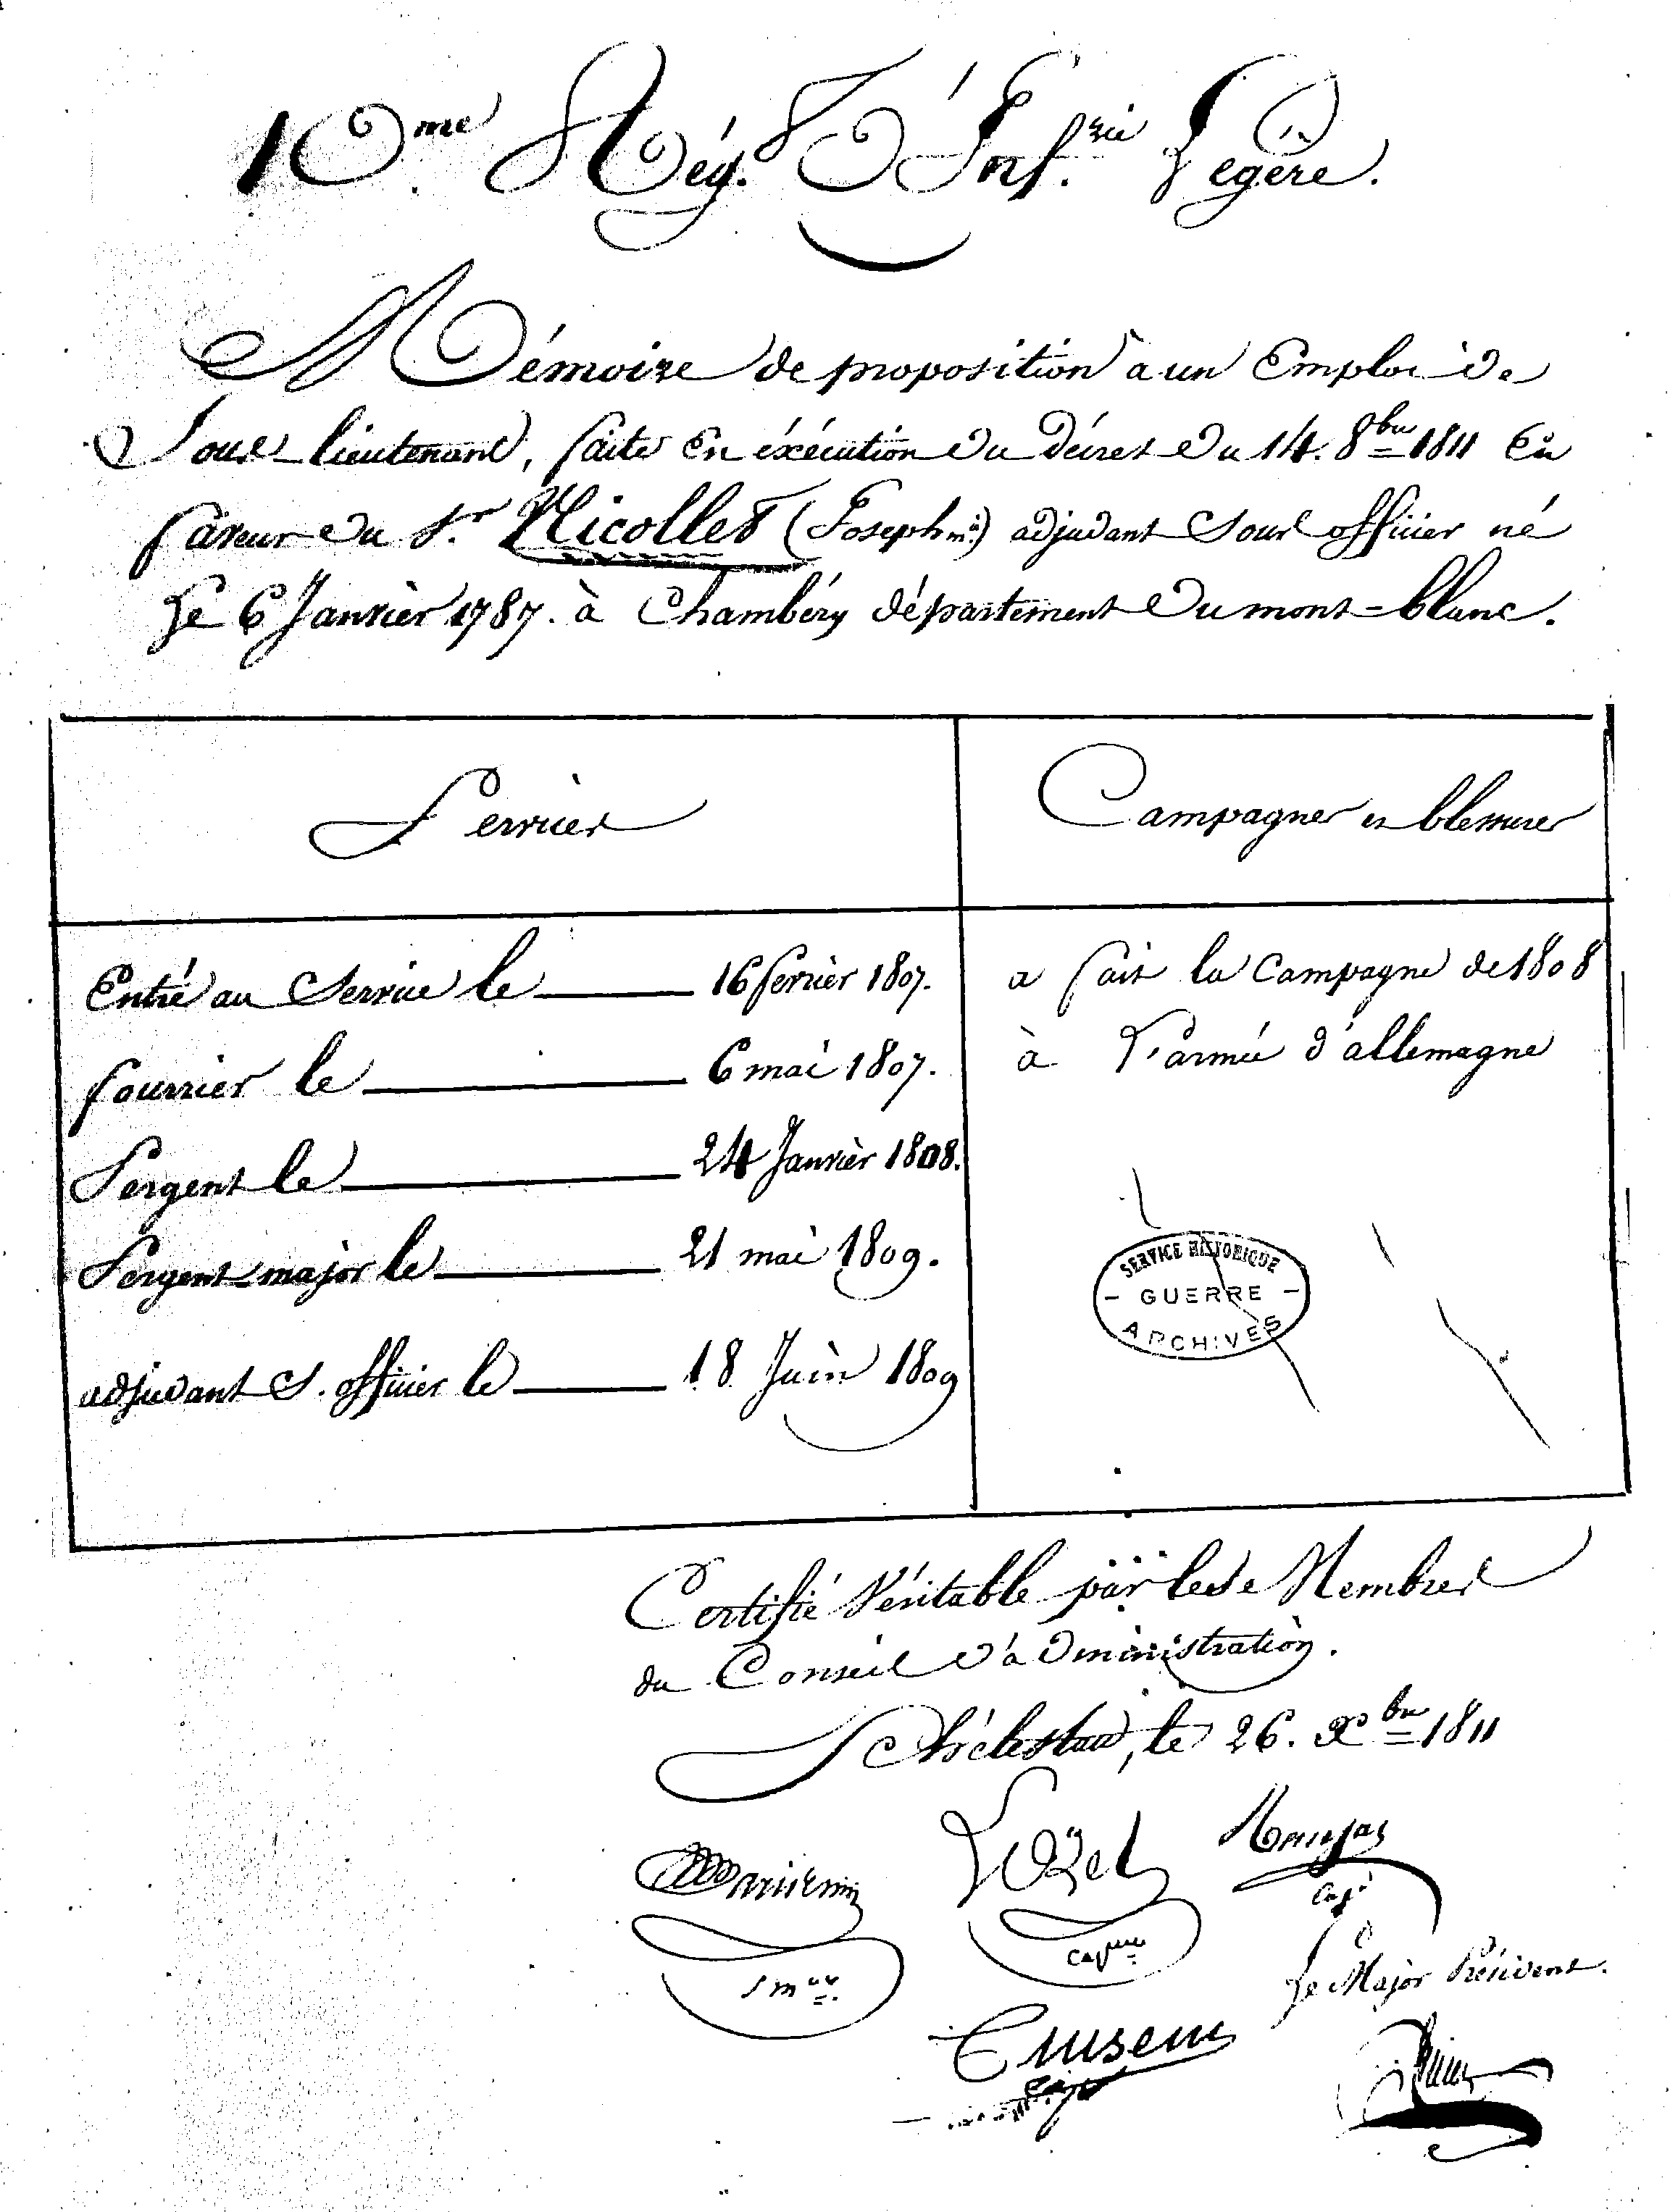 10.me Rég.t D'Inf.rie Légère.
Mémoire de proposition à un Emploi de
Sous-lieutenant, faite En éxécution du décret du 14. 8bre 1811 En
faveur du Sr. Nicollet (Joseph m.) adjudant Sous officier né
Le 6 Janvier 1787. à Chambéry département du mont-blanc.
Services
Campagnes et blessures
Entré au Service le 16 fevrier 1807.
a fait la Campagne de 1808
fourrier le 6 mai 1807.
à L'armée d'allemagne
Sergent le 24 Janvier 1808.
Sergent-major le 21 mai 1809.
SERVICE HISTORIQUE
- GUERRE -
ARCHIVES
adjudant S. officier le 18 Juin 1809
Certifié Véritable par les Membres
du Conseil d'administration.
Schélestad, le 26. Xbre 1811
Lozet
cap.
Le Major Président.